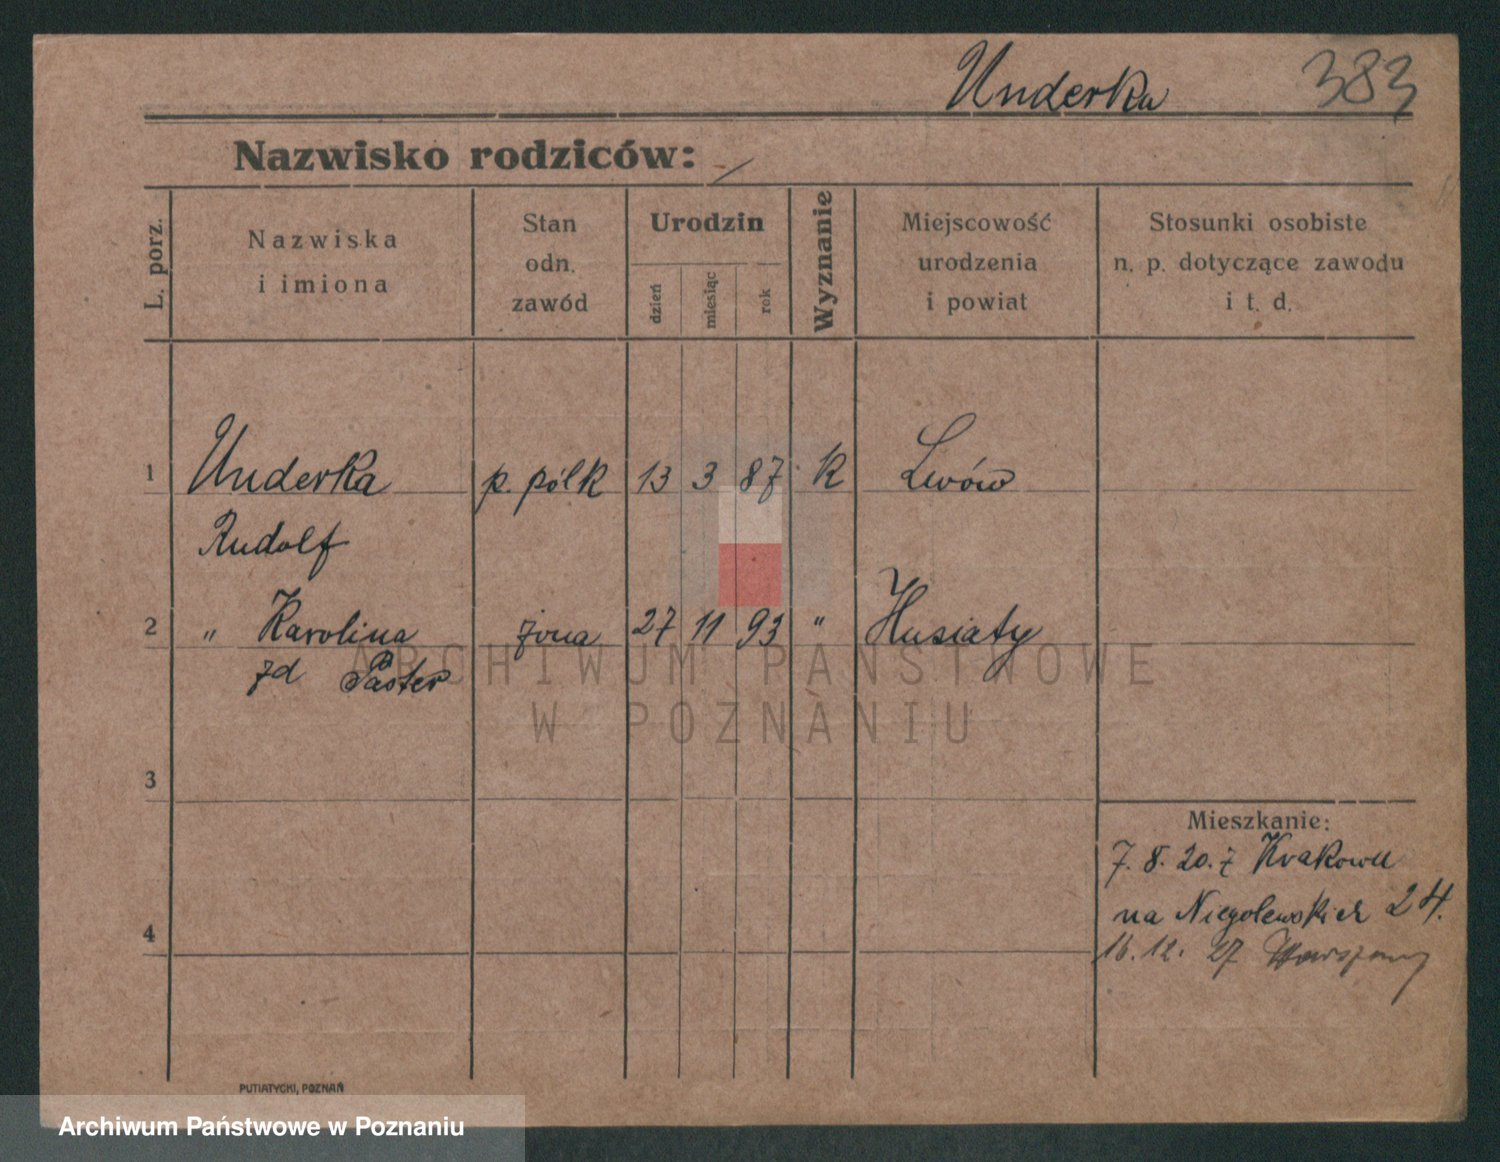 Underka 383
Nazwisko rodziców: /
L. porz.
Nazwiska
i imiona
Stan
odn.
zawód
Urodzin
dzień
miesiąc
rok
Wyznanie
Miejscowość
urodzenia
i powiat
Stosunki osobiste
n. p. dotyczące zawodu
i t. d.
1 Underka p. pólk 13 3 87 k Lwów
Rudolf
2 " Karolina żona 27 11 93 " Husiaty
zd Paster
ARCHIWUM PAŃSTWOWE
W POZNANIU
3
Mieszkanie:
7. 8. 20. z Krakowa
na Niegolewskich 24.
4
16. 12. 27 Warszawy
PUTIATYCKI, POZNAŃ
Archiwum Państwowe w Poznaniu